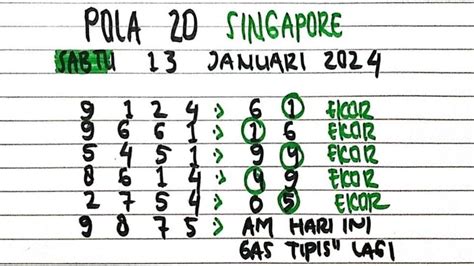 POLA 2D SINGAPORE
SABTU 13 JANUARI 2024
9 1 2 4 :> 6 1 EKOR
9 6 6 1 :> 1 6 EKOR
5 4 5 1 :> 9 9 EKOR
8 6 1 4 :> 4 9 EKOR
2 7 5 4 :> 0 5 EKOR
9 8 7 5 :> AM HARI INI
GAS TIPIS" LAGI